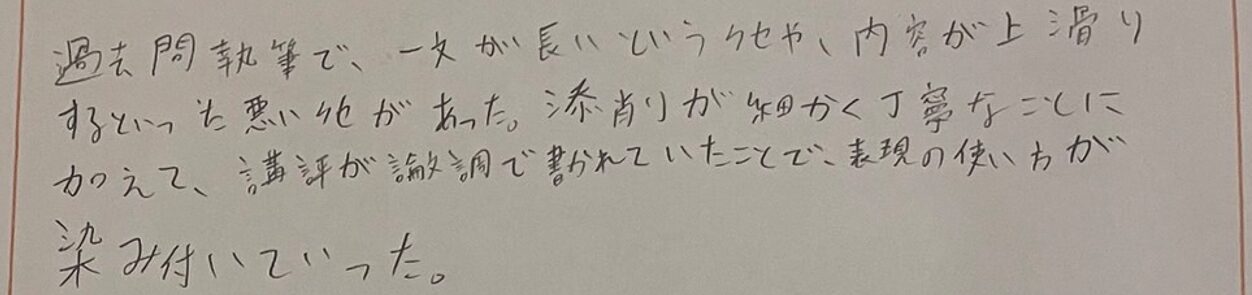 過去問執筆で、一文が長いというクセや、内容が上滑り
するといった悪いクセがあった。添削りが細かく丁寧なことに
加えて、講評が論文調で書かれていたことで、表現の使い方が
染み付いていった。